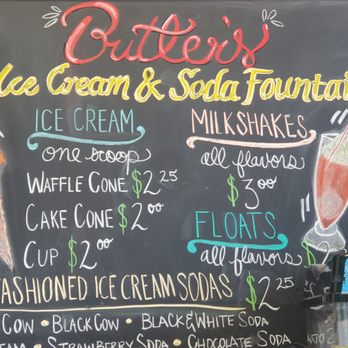 Butler's
Ice Cream & Soda Fountai
ICE CREAM
one scoop
WAFFLE CONE $2.25
CAKE CONE $2.00
CUP $2.00
MILKSHAKES
all flavors
$3.00
FLOATS
all flavors
$2
FASHIONED ICE CREAM SODAS $2.25
COW • BLACK COW • BLACK & WHITE SODA
STRAWBERRY SODA • CHOCOLATE SODA